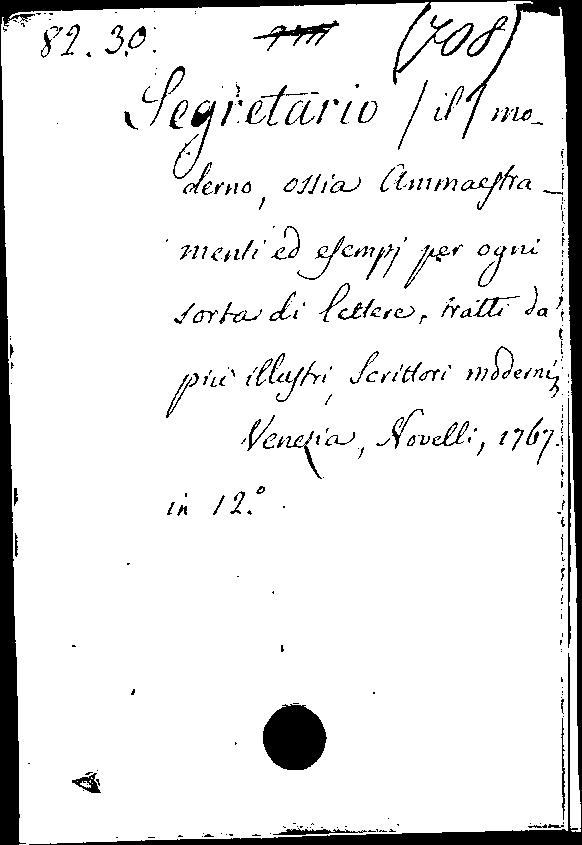 82.30. (708)
Segretario / il / mo-
derno, ossia Ammaestra-
menti ed esempj per ogni
sorta di lettere, tratti da'
più illustri Scrittori moderni,
Venezia, Novelli, 1767.
in 12.°